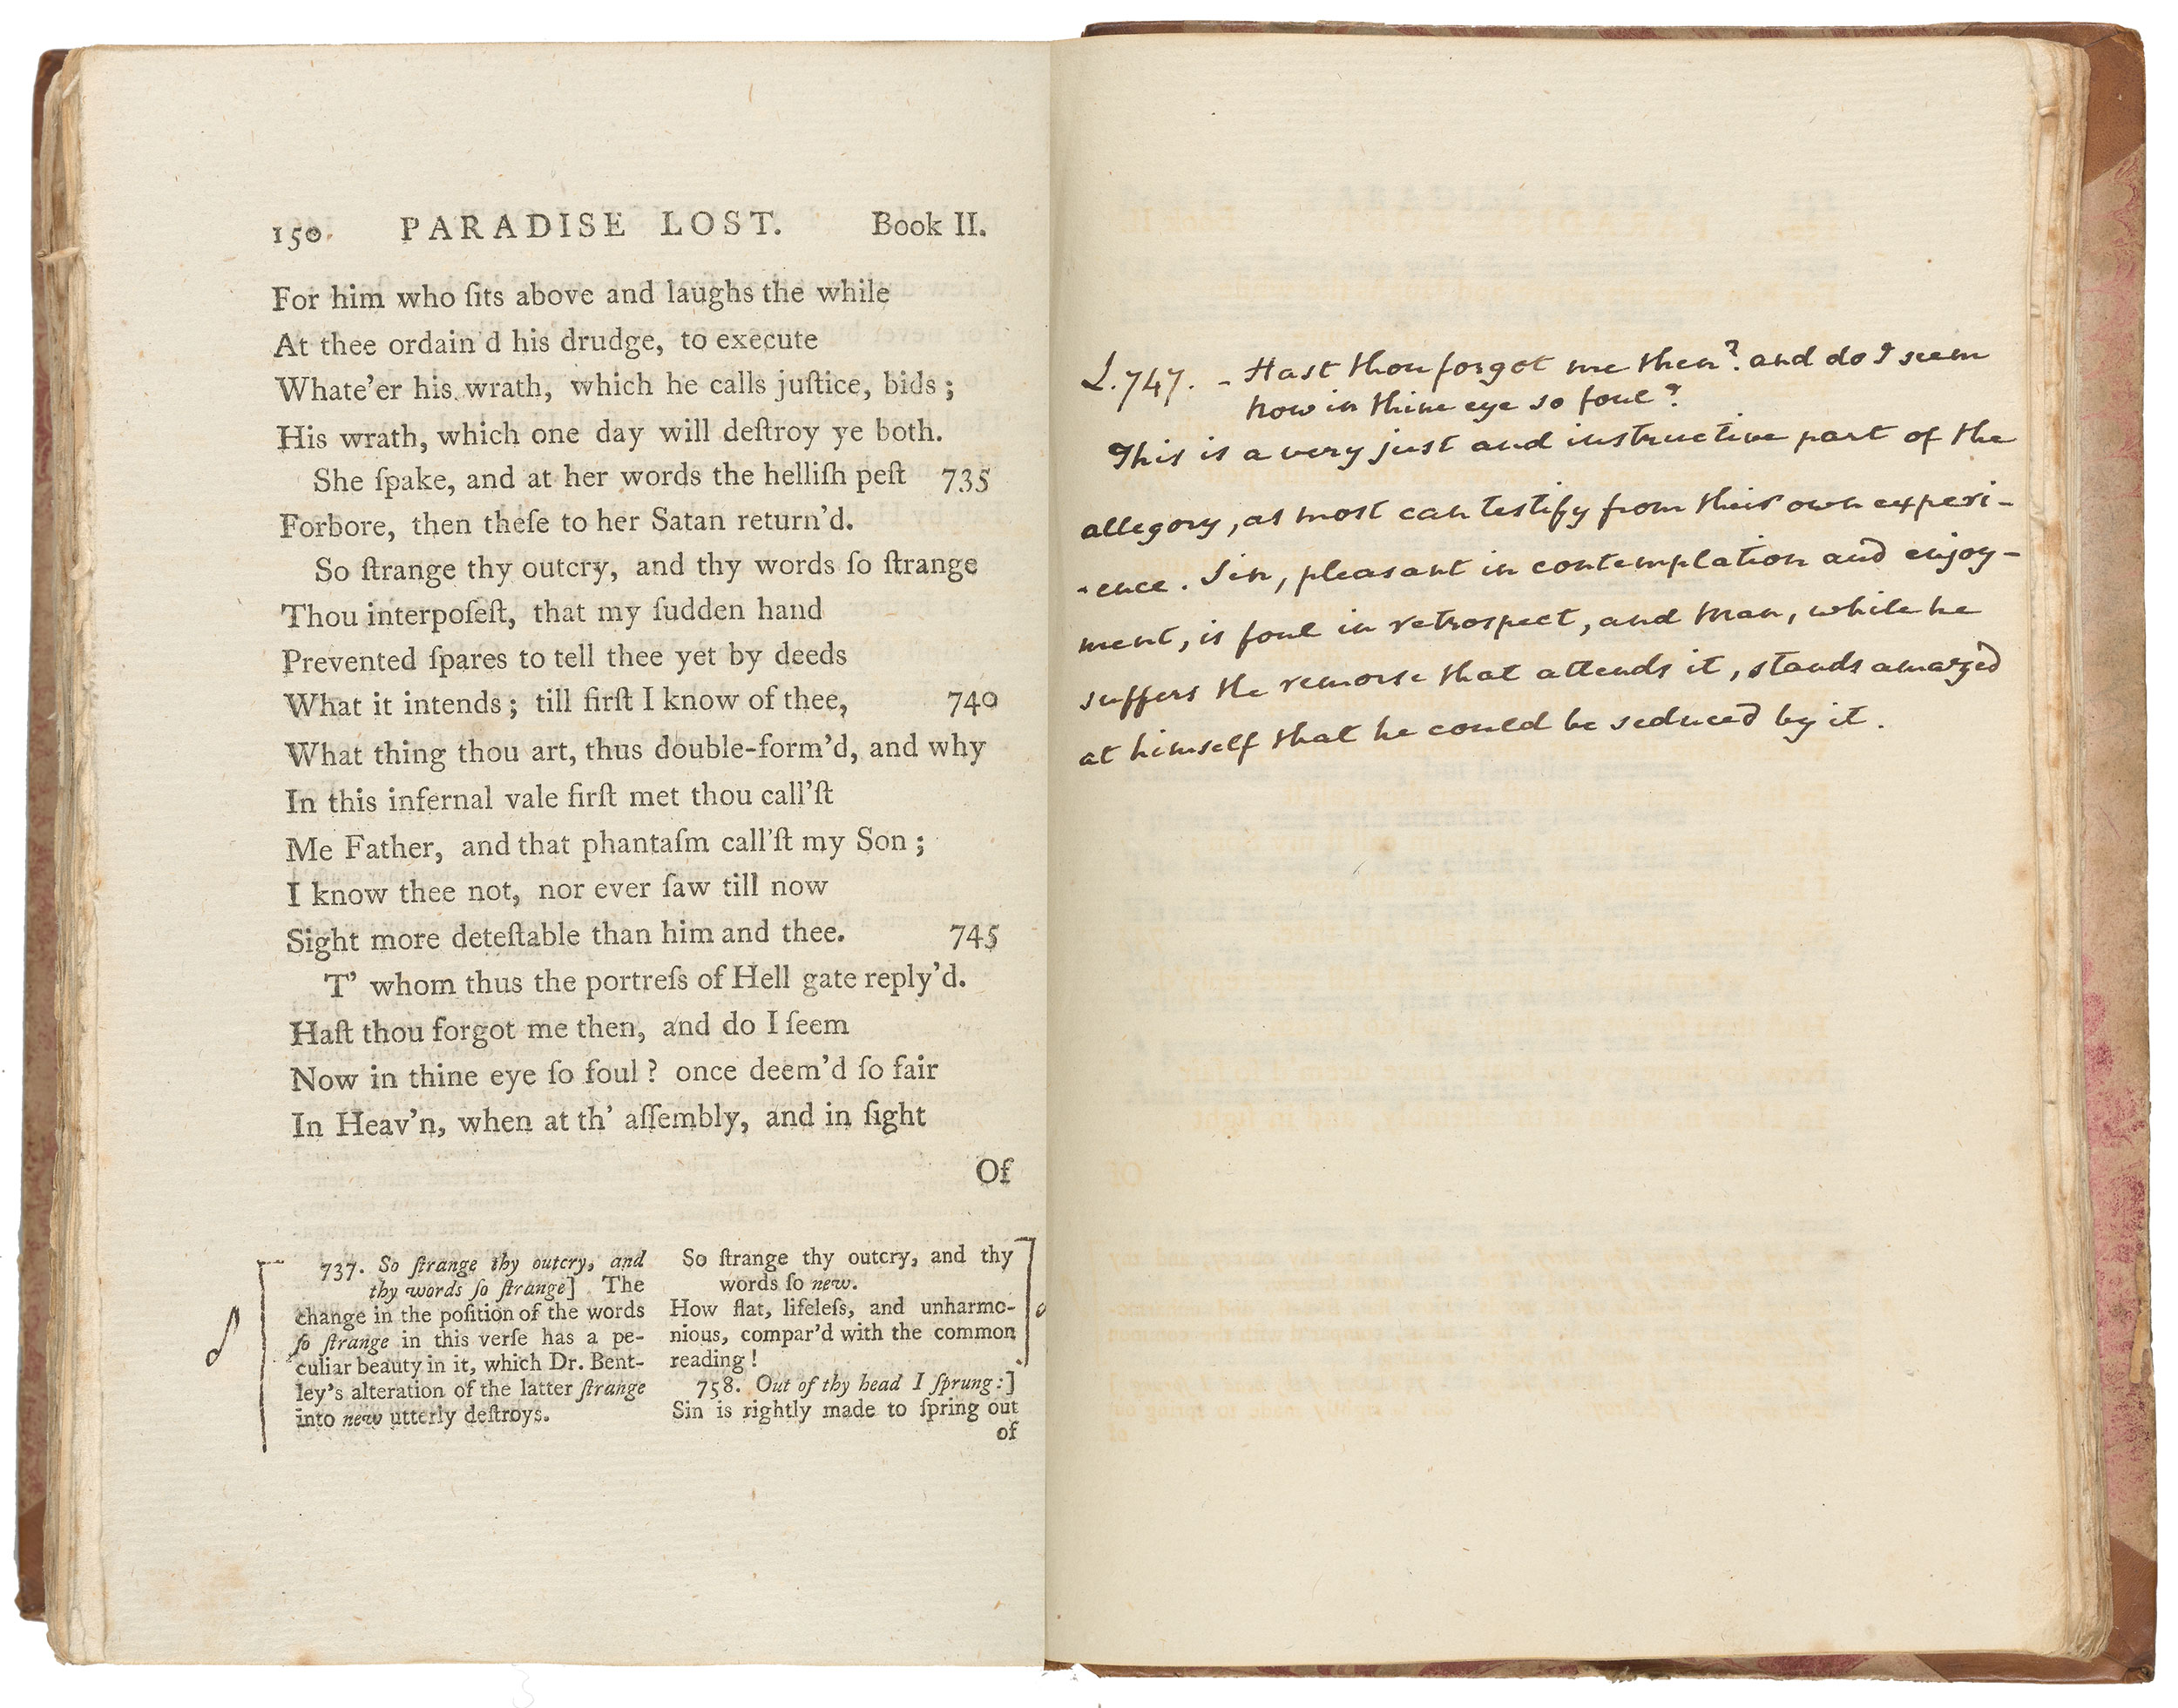 150 PARADISE LOST. Book II.
For him who ſits above and laughs the while
At thee ordain'd his drudge, to execute
Whate'er his wrath, which he calls juſtice, bids;
His wrath, which one day will deſtroy ye both.
She ſpake, and at her words the helliſh peſt 735
Forbore, then theſe to her Satan return'd.
So ſtrange thy outcry, and thy words ſo ſtrange
Thou interpoſeſt, that my ſudden hand
Prevented ſpares to tell thee yet by deeds
What it intends; till firſt I know of thee, 740
What thing thou art, thus double-form'd, and why
In this infernal vale firſt met thou call'ſt
Me Father, and that phantaſm call'ſt my Son;
I know thee not, nor ever ſaw till now
Sight more deteſtable than him and thee. 745
T' whom thus the portreſs of Hell gate reply'd.
Haſt thou forgot me then, and do I ſeem
Now in thine eye ſo foul? once deem'd ſo fair
In Heav'n, when at th' aſſembly, and in ſight
Of
737. So ſtrange thy outcry, and
thy words ſo ſtrange] The
change in the poſition of the words
ſo ſtrange in this verſe has a pe-
culiar beauty in it, which Dr. Bent-
ley's alteration of the latter ſtrange
into new utterly deſtroys.
So ſtrange thy outcry, and thy
words ſo new.
How flat, lifeleſs, and unharmo-
nious, compar'd with the common
reading!
758. Out of thy head I ſprung:]
Sin is rightly made to ſpring out
of
L.747. - Hast thou forgot me then? and do I seem
now in thine eye so foul?
This is a very just and instructive part of the
allegory, as most can testify from their own experi-
-ence. Sin, pleasant in contemplation and enjoy-
ment, is foul in retrospect, and man, while he
suffers the remorse that attends it, stands amazed
at himself that he could be seduced by it.